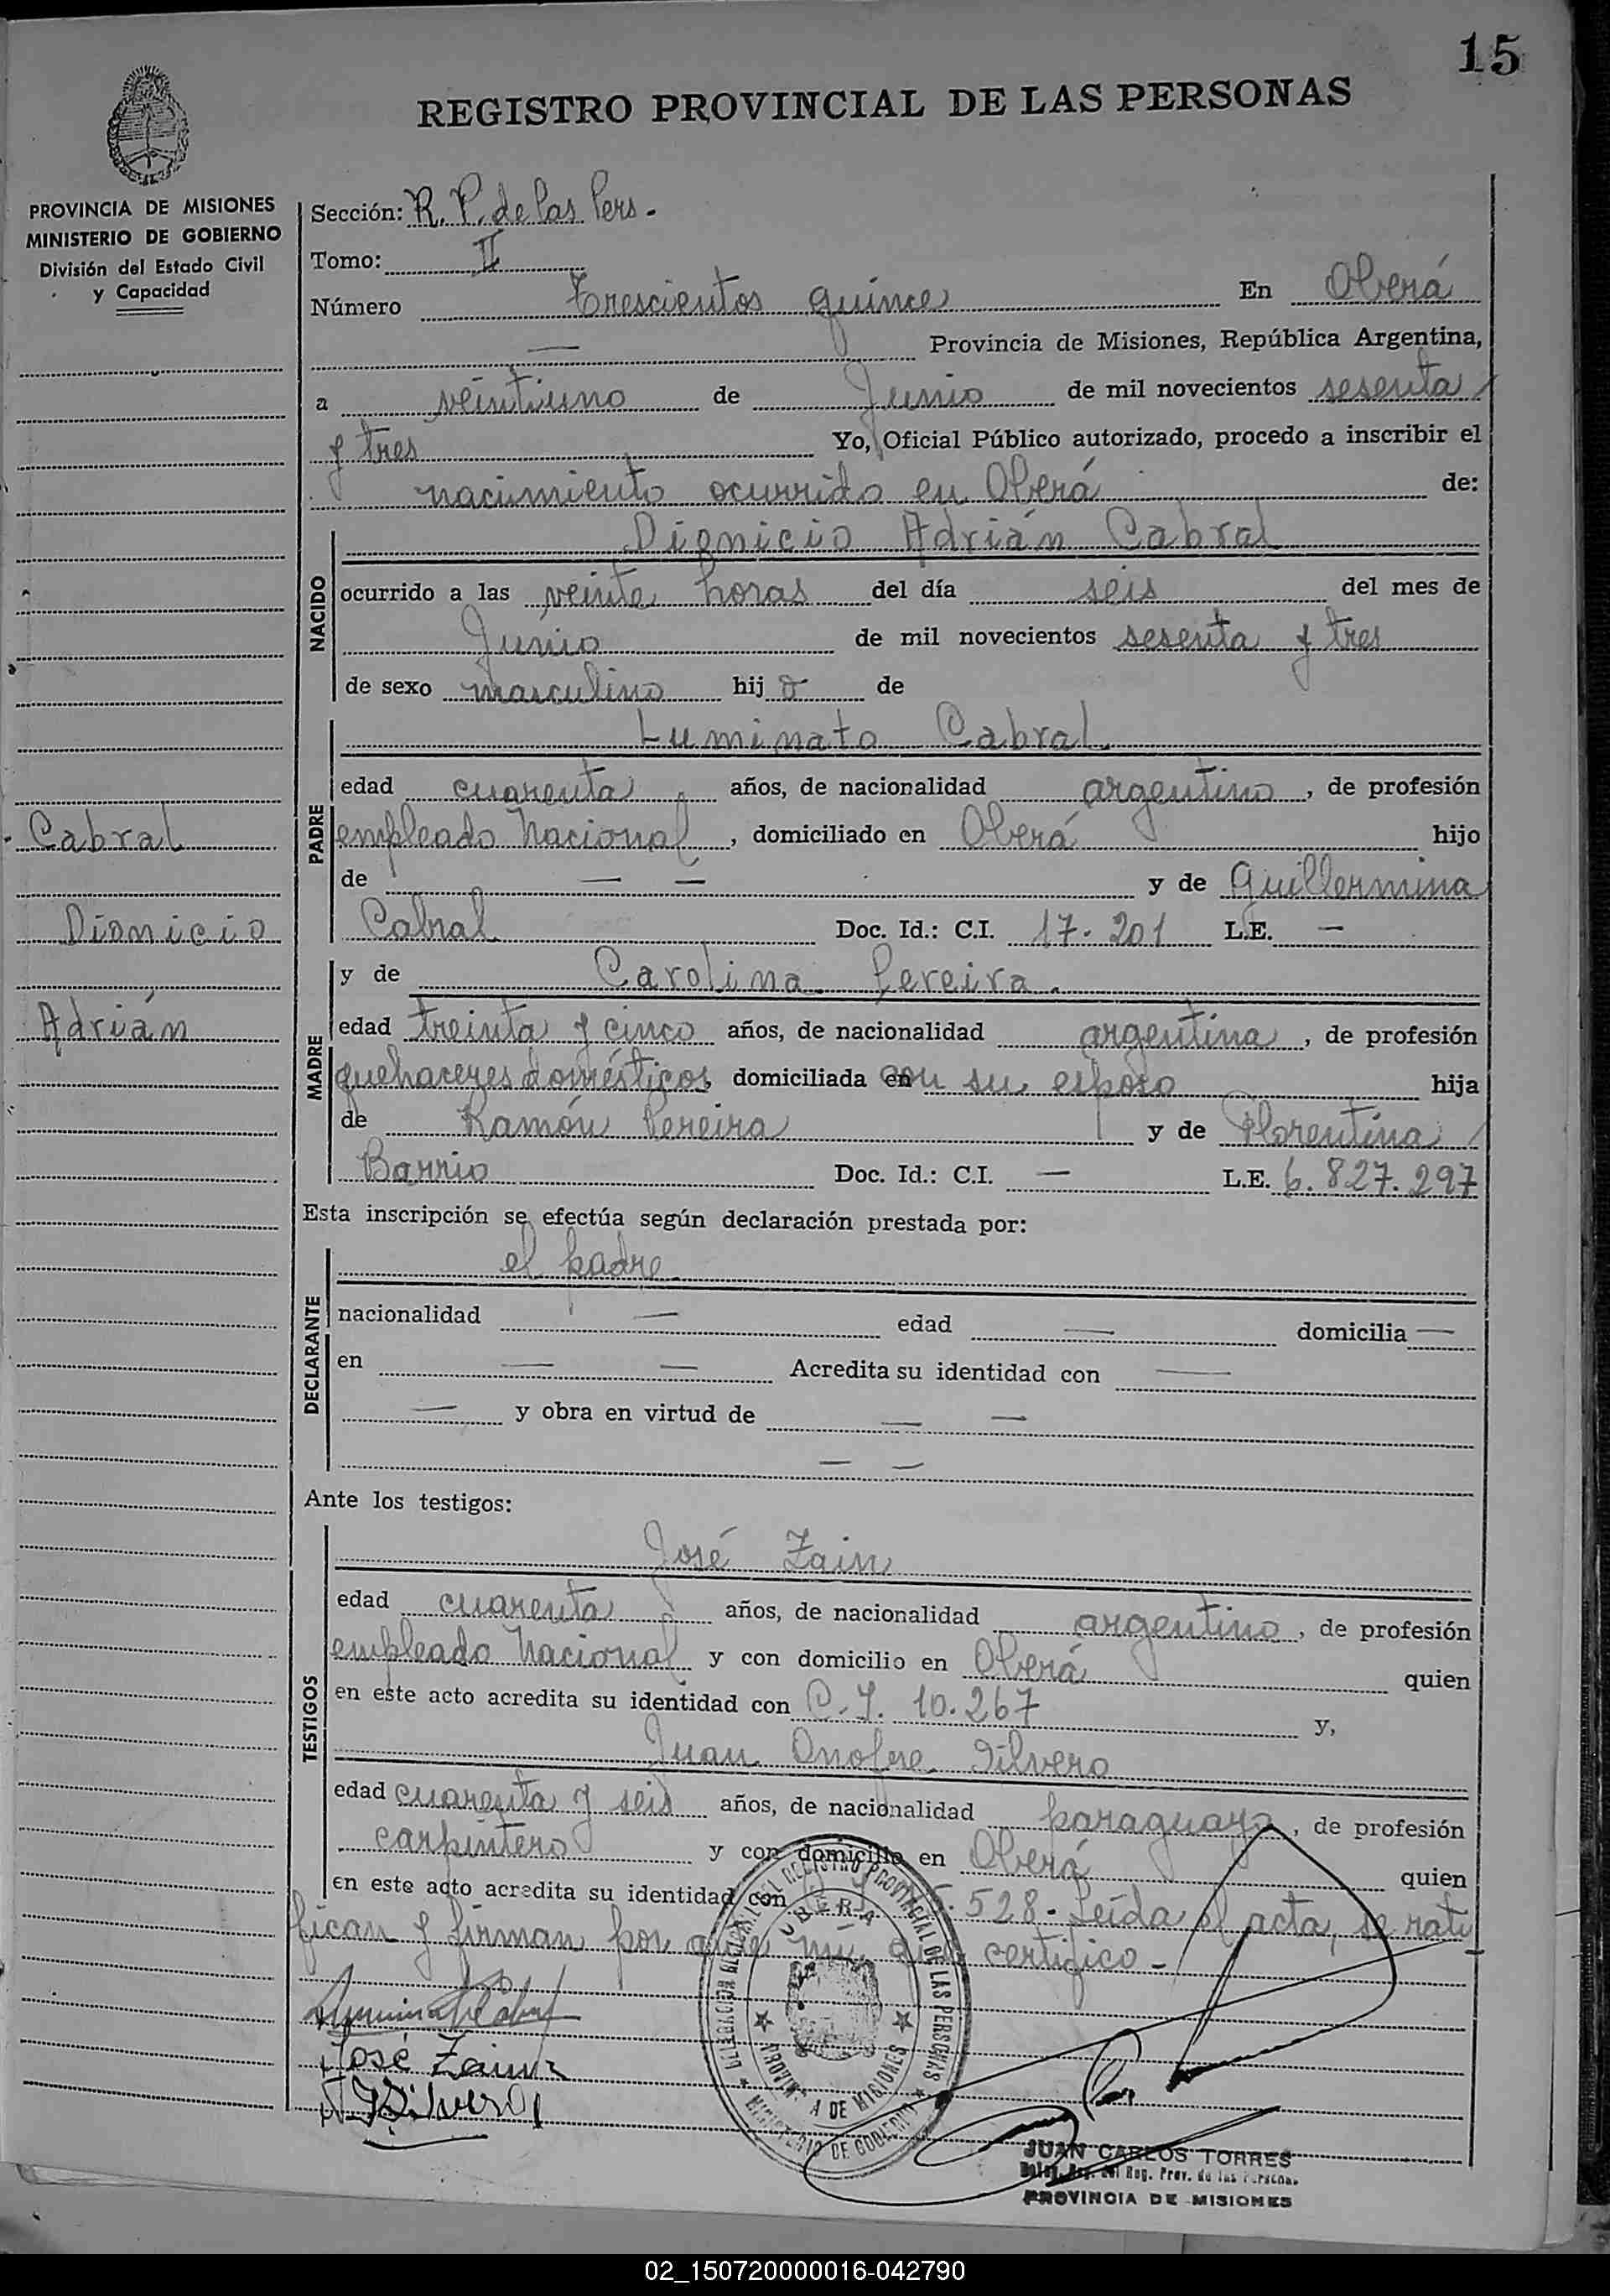 15
REGISTRO PROVINCIAL DE LAS PERSONAS
PROVINCIA DE MISIONES
MINISTERIO DE GOBIERNO
División del Estado Civil
y Capacidad
Sección: R. P. de las Pers.
Tomo: II
Número Trescientos quince En Oberá
— Provincia de Misiones, República Argentina,
a veintiuno de Junio de mil novecientos sesenta
y tres Yo, Oficial Público autorizado, procedo a inscribir el
nacimiento ocurrido en Oberá de:
NACIDO
Dionicio Adrián Cabral
ocurrido a las veinte horas del día seis del mes de
Junio de mil novecientos sesenta y tres
de sexo masculino hijo de
PADRE
Luminato Cabral
edad cuarenta años, de nacionalidad argentino, de profesión
empleado Nacional, domiciliado en Oberá hijo
de — — y de Guillermina
Cabral Doc. Id.: C.I. 17.201 L.E. —
Cabral
Dionicio
Adrián
MADRE
y de Carolina Pereira.
edad treinta y cinco años, de nacionalidad argentina, de profesión
quehaceres domésticos, domiciliada en con su esposo hija
de Ramón Pereira y de Florentina
Barrio Doc. Id.: C.I. — L.E. 6.827.297
Esta inscripción se efectúa según declaración prestada por:
DECLARANTE
el padre
nacionalidad — edad — domicilia —
en — — Acredita su identidad con —
— y obra en virtud de — —
— —
Ante los testigos:
TESTIGOS
José Zain
edad cuarenta años, de nacionalidad argentino, de profesión
empleado Nacional y con domicilio en Oberá quien
en este acto acredita su identidad con C.I. 10.267 y,
Juan Onofre Silvero
edad cuarenta y seis años, de nacionalidad paraguayo, de profesión
carpintero y con domicilio en Oberá quien
en este acto acredita su identidad con 528. Leída el acta, se rati
fican y firman por ante mí, que certifico -
José Zain
Silvero
OBERA
PROVINCIA DE MISIONES
MINISTERIO DE GOBIERNO
DEL REGISTRO PROVINCIAL DE LAS PERSONAS
JUAN CARLOS TORRES
Reg. Prov. de las Personas
PROVINCIA DE MISIONES
02_150720000016-042790